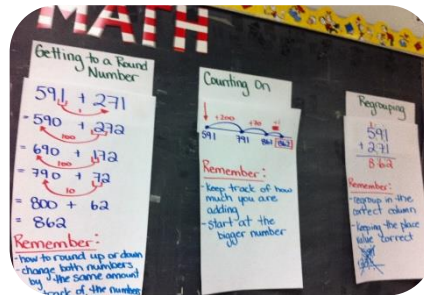 MATH
Getting to a Round
Number
591 + 271
1
= 590 + 272
100
= 690 + 172
100
= 790 + 72
10
= 800 + 62
= 862
Remember:
- how to round up or down
- change both numbers
by the same amount
track of the numbers
Counting On
+200 +70 +1
591 791 861 862
Remember:
- keep track of how
much you are
adding
- start at the
bigger number
Regrouping
1
591
+ 271
862
Remember:
- regroup in the
correct column
- keeping the place
value correct